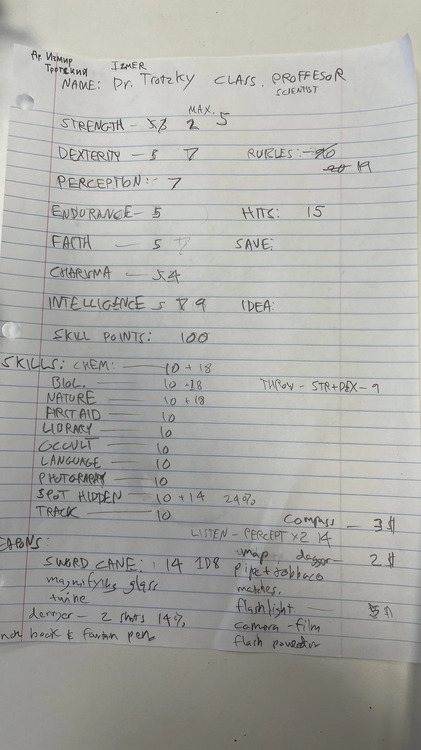 Др Измир IZMER
Тротский
NAME: Dr. Trotzky CLASS. PROFFESOR
SCIENTIST
MAX.
STRENGTH - 2 5
DEXTERITY - 5 7 RUBLES: 20
20 19
PERCEPTION: - 7
ENDURANCE - 5 HITS: 15
FAITH — 5 7 SAVE:
CHARISMA — 5 4
INTELLIGENCE 5 7 9 IDEA:
SKILL POINTS: 100
SKILLS: CHEM: — 10 + 18
BIOL. — 10 -18 THROW - STR+DEX - 9
NATURE — 10 + 18
FIRST AID — 10
LIBRARY — 10
OCCULT — 10
LANGUAGE — 10
PHOTOGRAPHY — 10
SPOT HIDDEN — 10 + 14 24%
TRACK — 10
COMPASS — 3 $
LISTEN - PERCEPT X2 14
EAPONS: map dagger - 2 $
SWORD CANE: 14 1D8 pipe + tobbaco
magnifying glass matches.
twine flashlight
- 2 shots 14% camera - film
book & pen flash powder